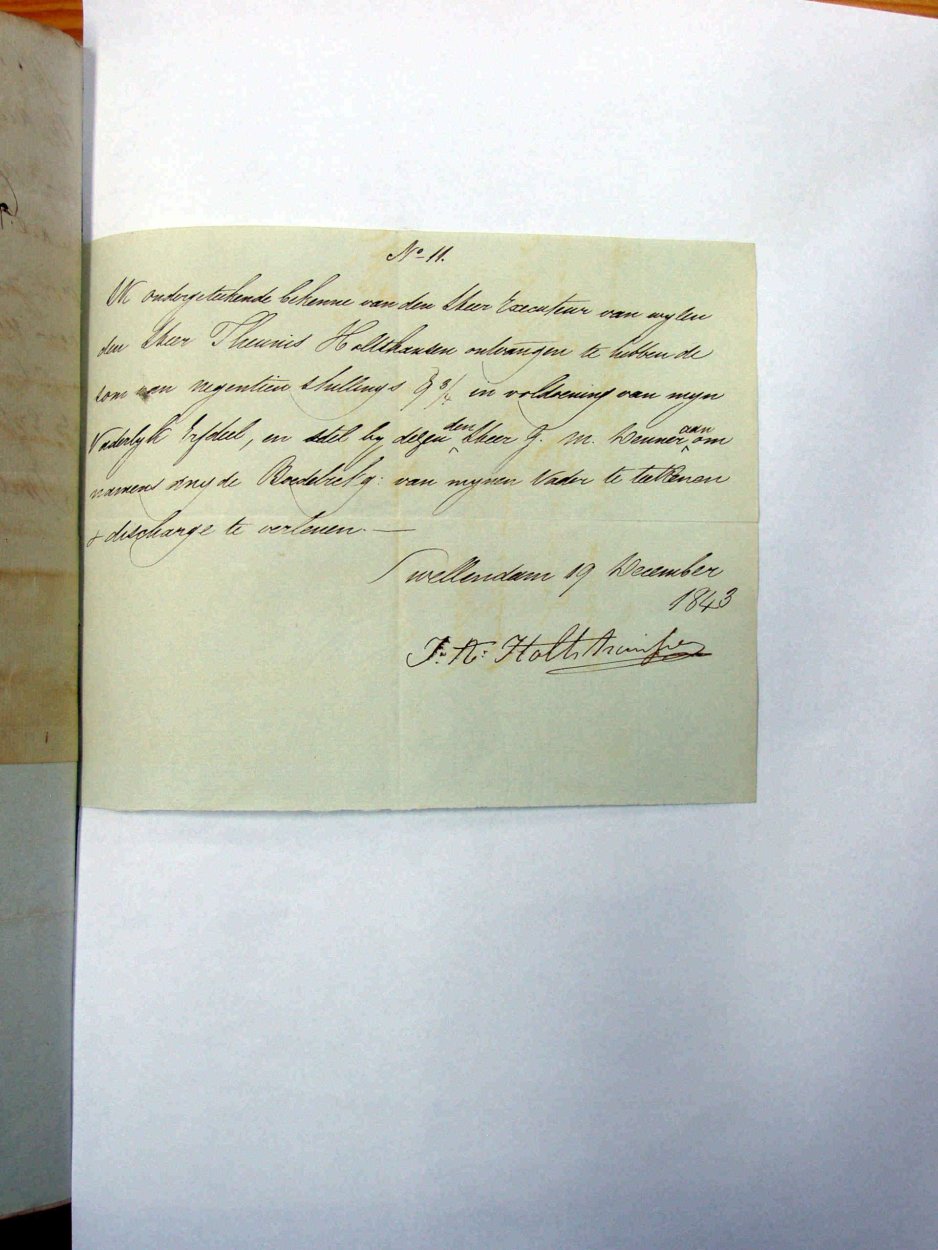 No 11.
Ik ondergeteekende bekenne van den Heer Executeur van wylen
den Heer Theunis Holtshausen ontvangen te hebben de
som van negentien shillings & 3/4 in voldoening van myn
Vaderlyk Erfdeel, en stel by dezen den Heer J. M. aan om
namens my de Boedelrek g: van mynen Vader te teekenen
& discharge te verleenen. —
Swellendam 19 December
1843